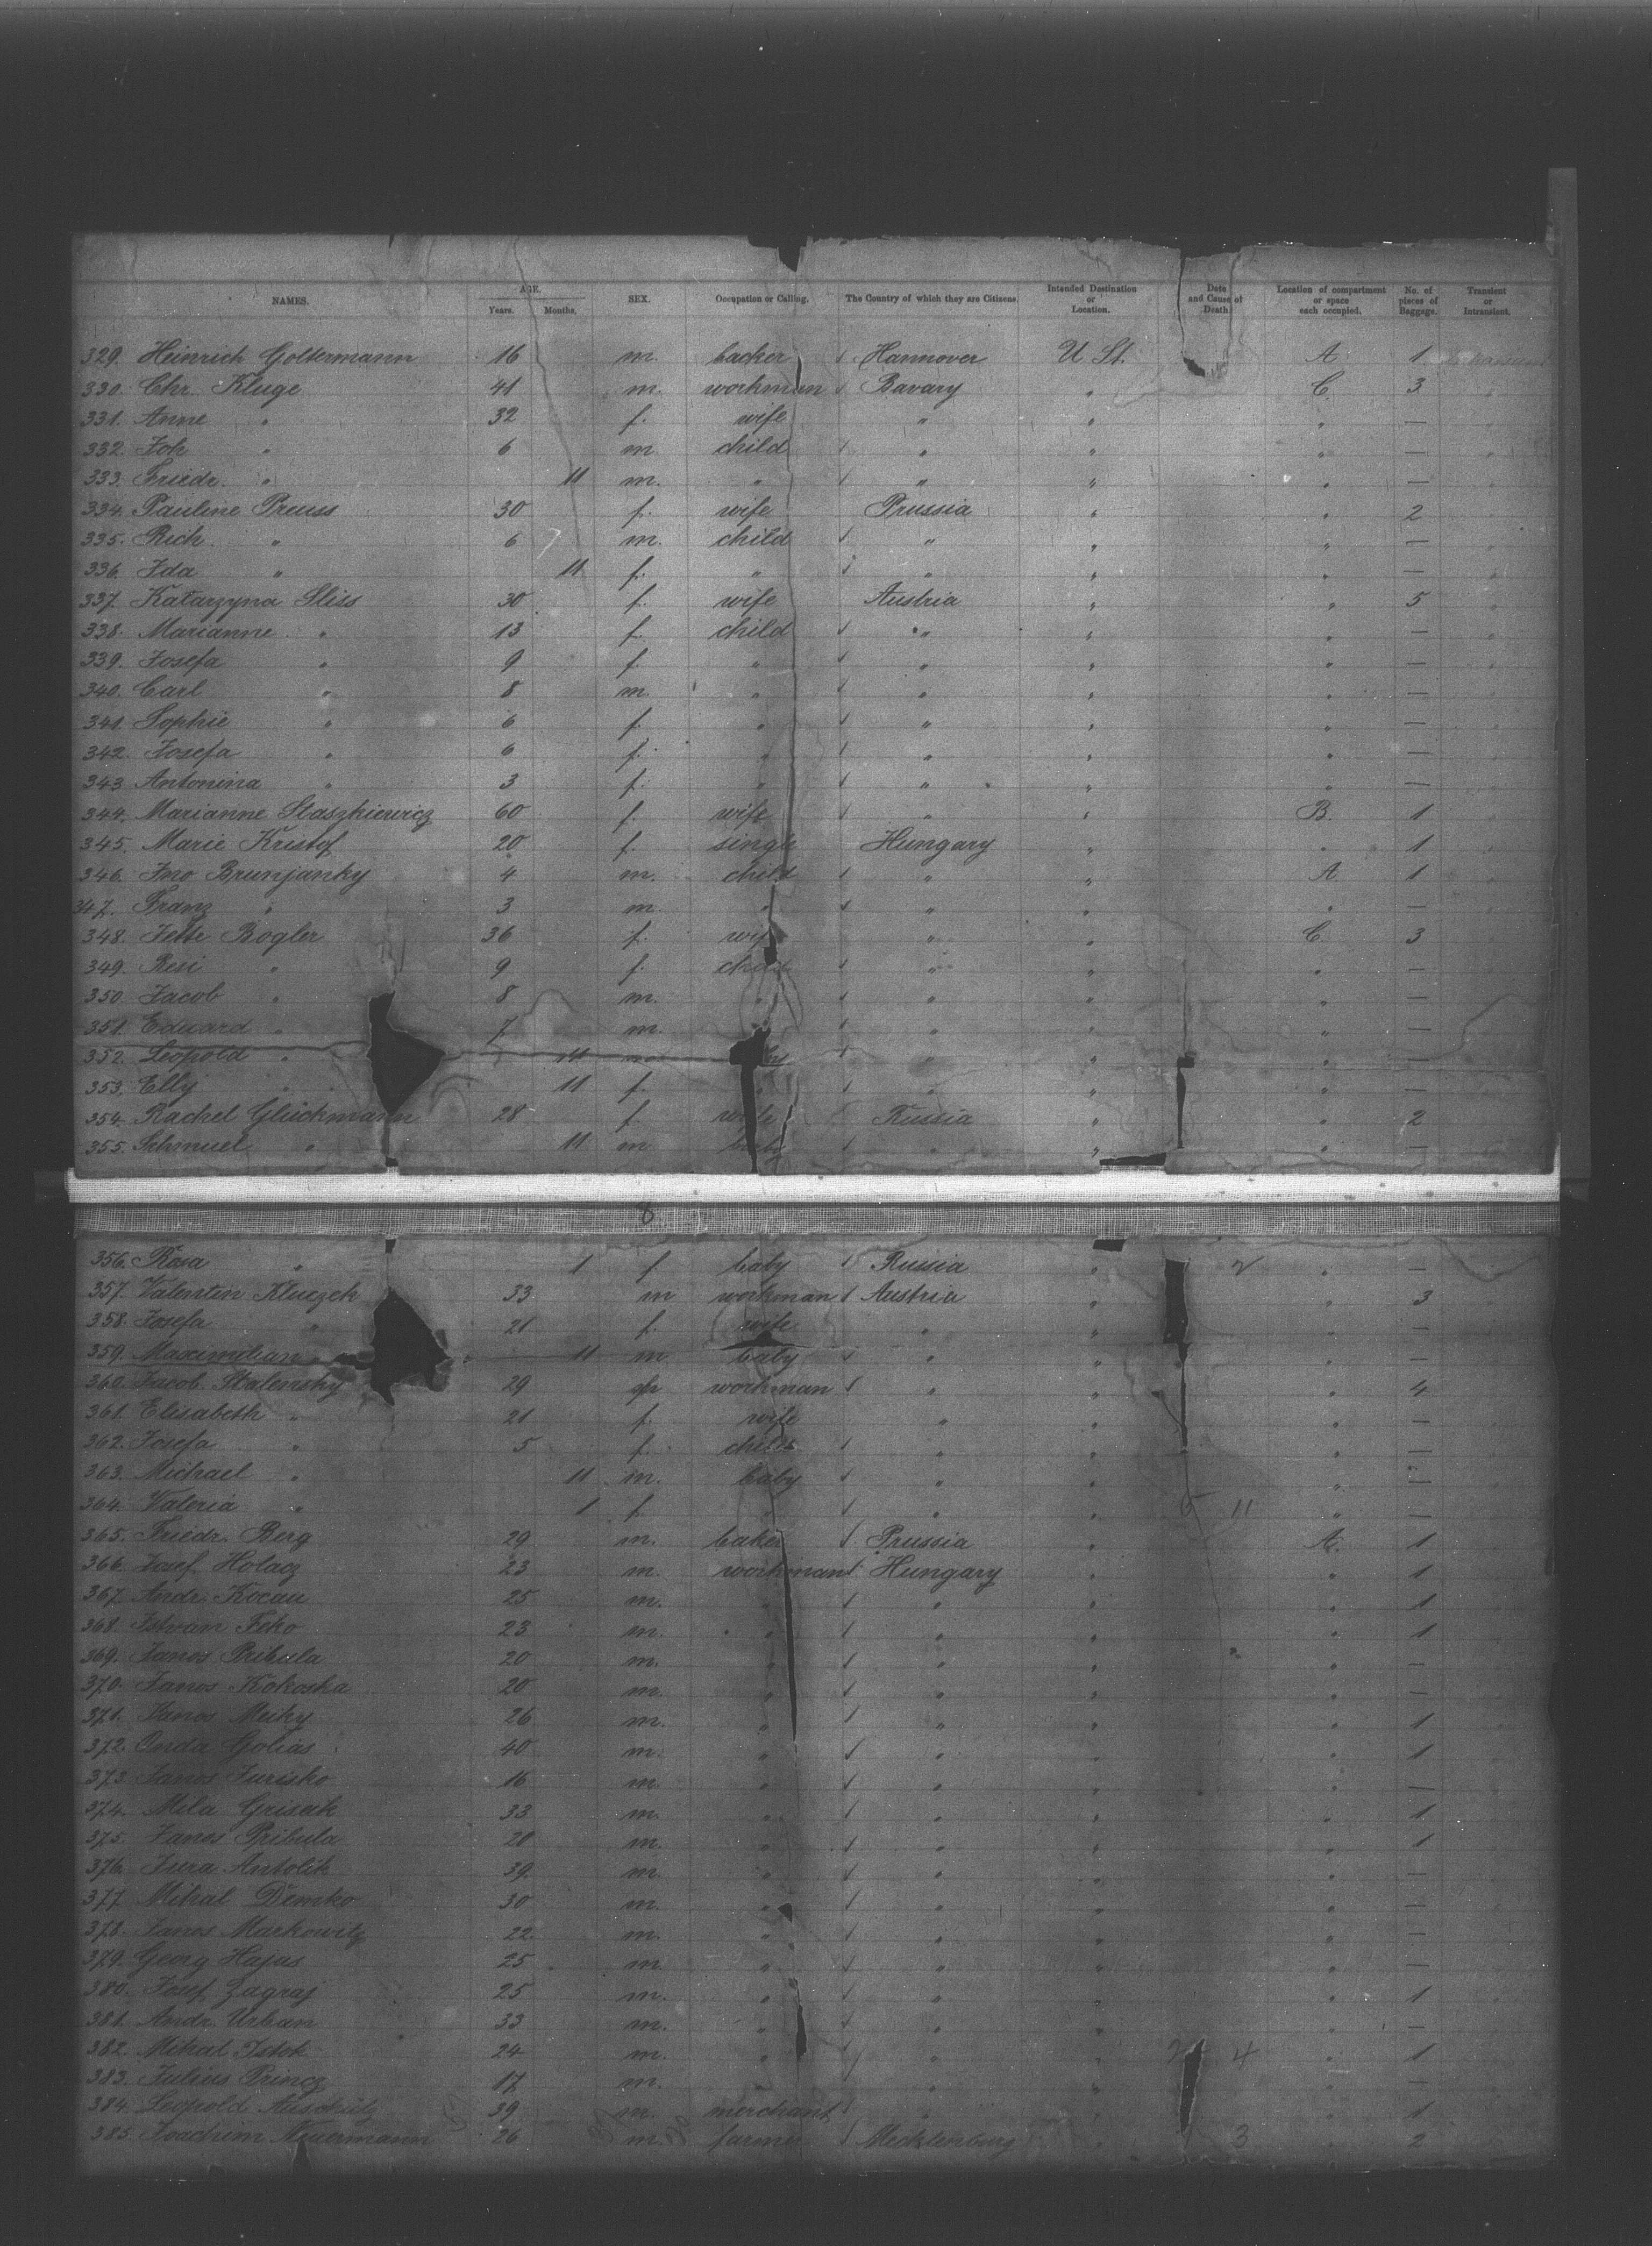 NAMES. AGE. Years. Months. SEX. Occupation or Calling. The Country of which they are Citizens. Intended Destination or Location. Date and Cause of Death. Location of compartment or space each occupied. No. of pieces of Baggage. Transient or Intransient.
329. Heinrich Goltermann 16 m. backer Hannover U. St. A. 1
330. Chr. Kluge 41 m. workman Bavary " C. 3
331. Anne " 32 f. wife " " " —
332. Joh " 6 m. child " " " —
333. Friedr. " 11 m. " " " " —
334. Pauline Preuss 30 f. wife Prussia " " 2
335. Rich. " 6 m. child " " " —
336. Ida " 11 f. " " " " —
337. Katarzyna Sliss 30 f. wife Austria " " 5
338. Marianne " 13 f. child " " " —
339. Josefa " 9 f. " " " " —
340. Carl " 8 m. " " " " —
341. Sophie " 6 f. " " " " —
342. Josefa " 6 f. " " " " —
343 Antonina " 3 f. " " " " —
344. Marianne Staszkiewicz 60 f. wife " " B. 1
345. Marie Kristof 20 f. single Hungary " " 1
346. Ino Brunjanky 4 m. child " " A. 1
347. Franz " 3 m. " " " " —
348. Jette Bogler 36 f. wife " " C. 3
349. Resi " 9 f. child " " " —
350. Jacob " 8 m. " " " " —
351. Eduard " 7 m. " " " " —
352. Leopold " 11 m " " " —
353. Elly " 11 f. " " " " —
354. Rachel Glückmann 28 f. wife Russia " " 2
355. Schmuel " 11 m baby " " " —
8
356. Rosa " 1 f baby Russia " 2 " —
357. Valentin Kluczek 33 m workman Austria " " 3
358. Josefa " 21 f. wife " " " —
359. Maximilian " 11 m baby " " " —
360. Jacob Stalensky 29 m workman " " " 4
361. Elisabeth " 21 f. wife " " " —
362. Josefa " 5 f. child " " " —
363. Michael " 11 m. baby " " " —
364. Valeria " 1 f. " " " 5 11 " —
365. Friedr. Berg 29 m. baker Prussia " A. 1
366. Josef Holacz 23 m. workman Hungary " " 1
367. Andr. Kocau 25 m. " " " " 1
368. Istvan Feko 23 m. " " " " 1
369. Janos Pribula 20 m. " " " " —
370. Janos Kokoska 20 m. " " " " —
371. Janos Meiky 26 m. " " " " 1
372. Onda Golias 40 m. " " " " 1
373. Janos Jurisko 16 m. " " " " —
374. Mila Griscik 33 m. " " " " 1
375. Janos Pribula 20 m. " " " " 1
376. Jura Antolik 39 m. " " " " —
377. Mihal Demko 30 m. " " " " —
378. Janos Markowitz 22 m. " " " " —
379. Georg Hajas 25 m. " " " " —
380. Josef Zagraj 25 m. " " " " 1
381. Andr. Urban 33 m. " " " " —
382. Mihal Istok 24 m. " " " 4 " 1
383. Julius Princz 17 m. " " " " —
384. Leopold 39 m. merchant " " " 1
385. Joachim Neuermann 26 m. farmer Mecklenburg " 3 " 2